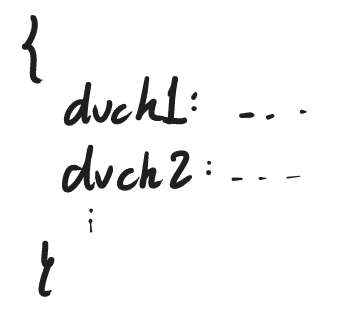 {
dvch1: - . .
dvch2: - - -
⋮
}